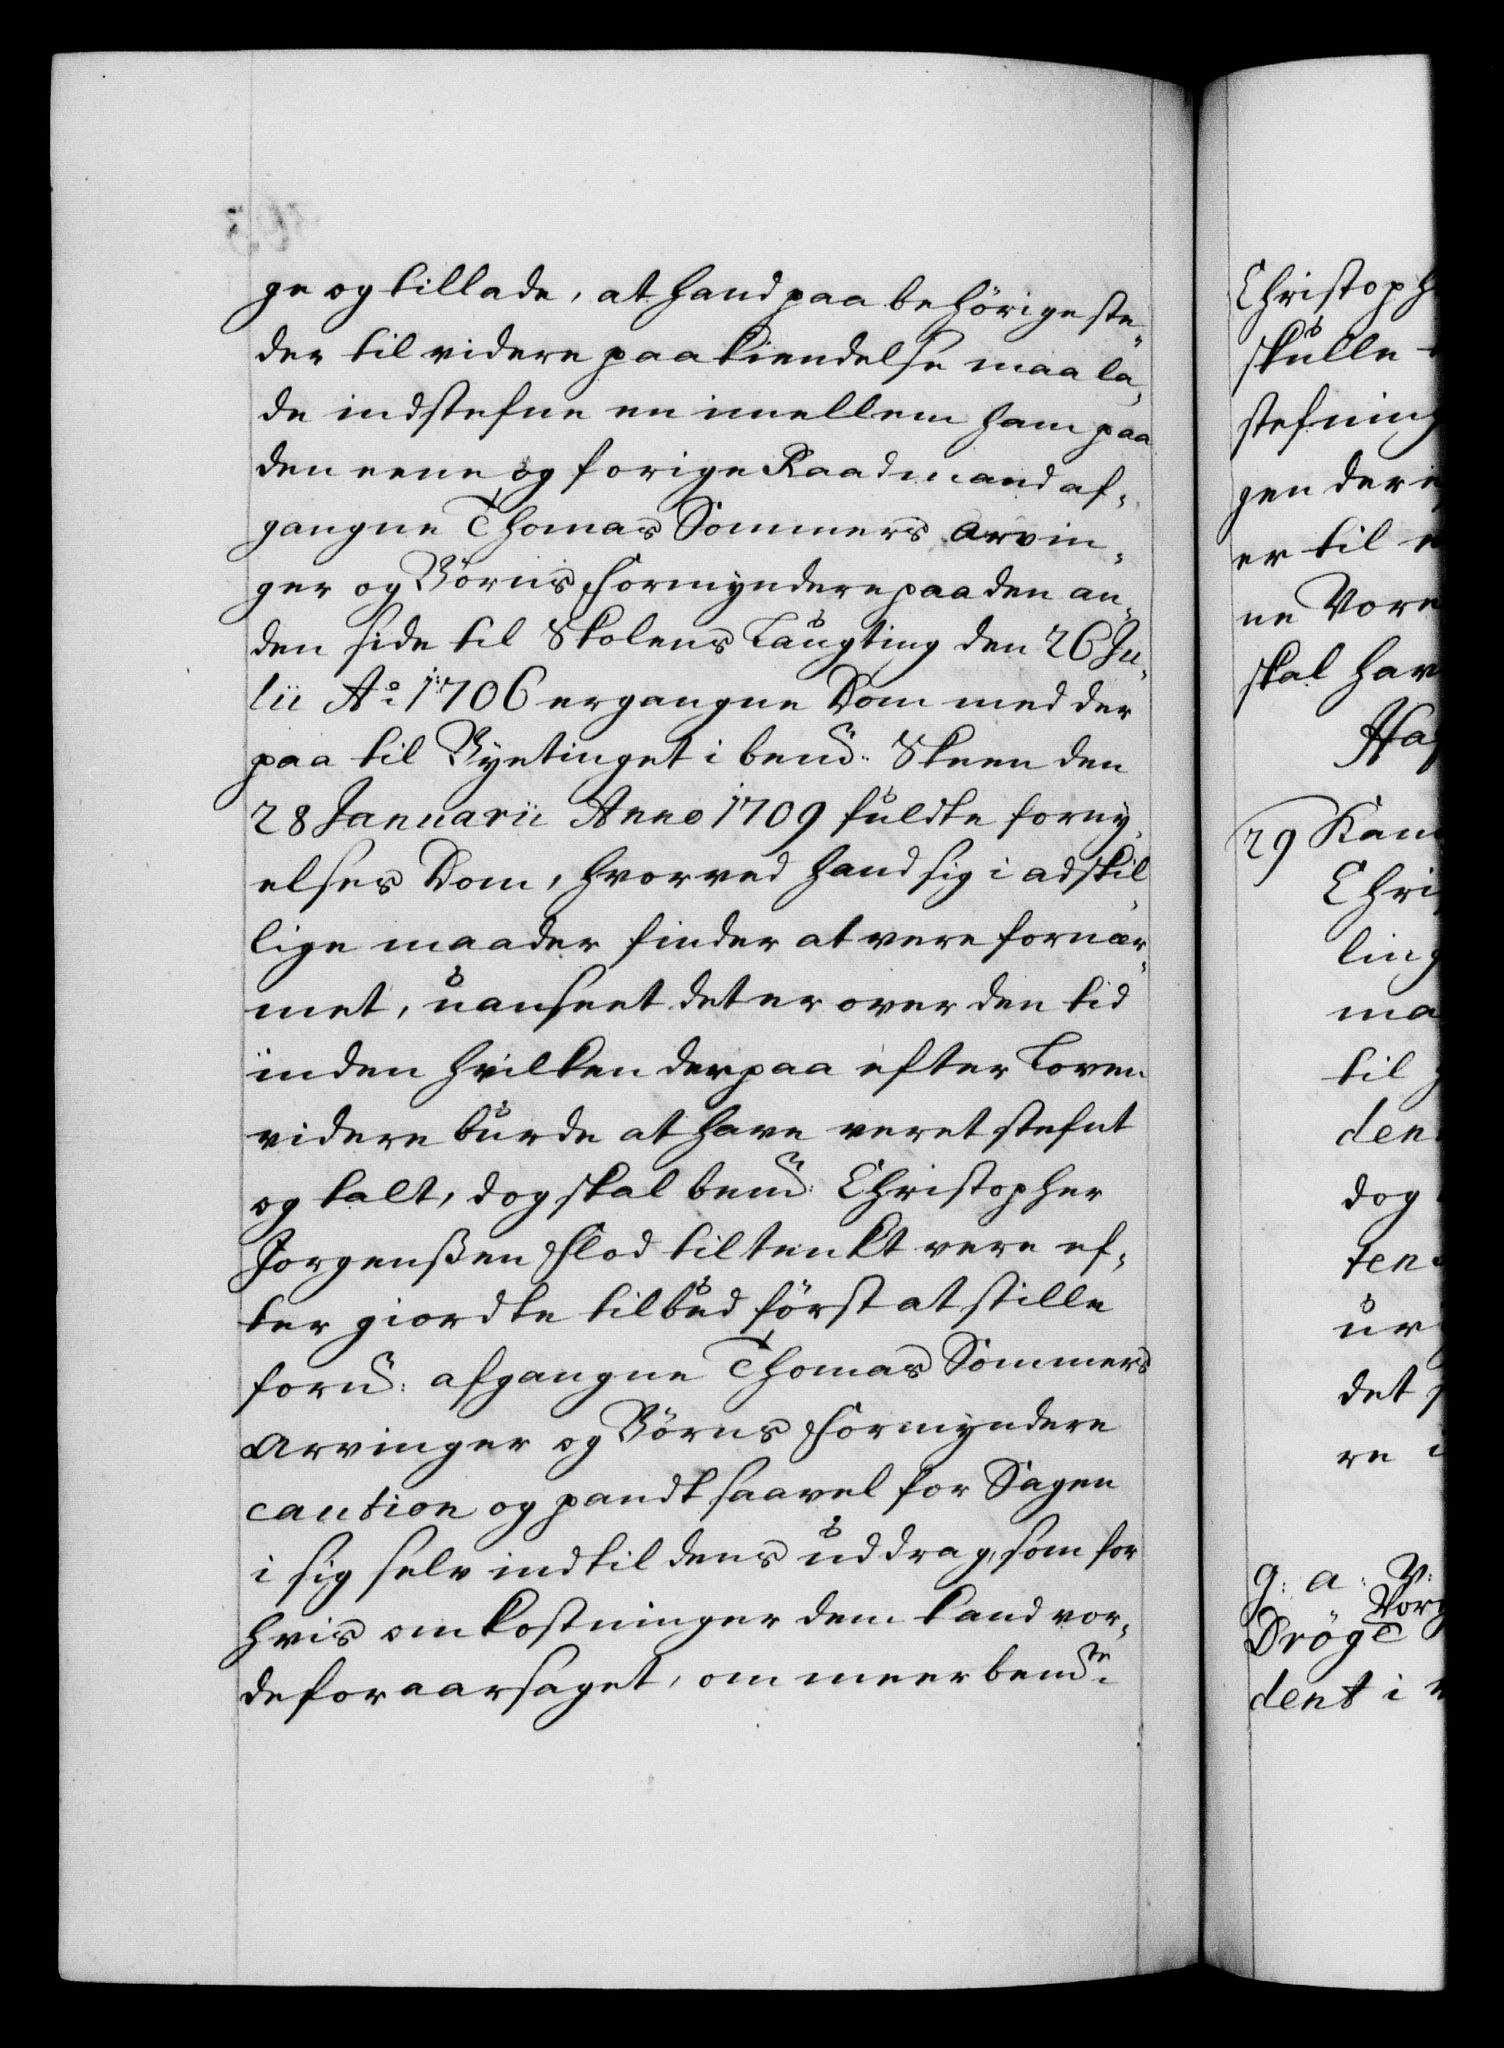 ge og tillade, at hand paa behörige ste¬
der til videre paakiendelse maa la¬
de indstefne en imellem ham paa
den eene og forige Raadmand af¬
gangne Thomas Sommers arvin¬
ger og Börns Formyndere paa den an¬
den side til Skolens Laugting den 26 Ju¬
lii Ao 1706 ergangne Dom med der
paa til Byetinget i bemte Skeen den
28 Januarii Anno 1709 fuldte forny¬
elses Dom, hvorved hand sig i adskil¬
lige maader finder at vere fornær¬
met, uanseet det er over den tid
inden hvilken derpaa efter Loven
videre burde at have veret stefnt
og kalt, dog skal bemte: Christopher
Jorgenßen Flod tiltenkt vere ef¬
ter giordte tilbud först at stille
forn: afgangne Thomas Sommers
Arvinger og Börns Formyndere
caution og pandt saavel for Sagen
i sig selv indtil dens uddrag, som for
hvis omkostninger dem kand vor¬
de foraarsaget, om meerbemte:
Christoph
skulle
stefning
gen der
er til
ne Vore
skal hav
29 Kam
Chri
ling
ma
til
den
dog
ten
ur
det
re
G: a: V:
Vorg
Dröge
dent i